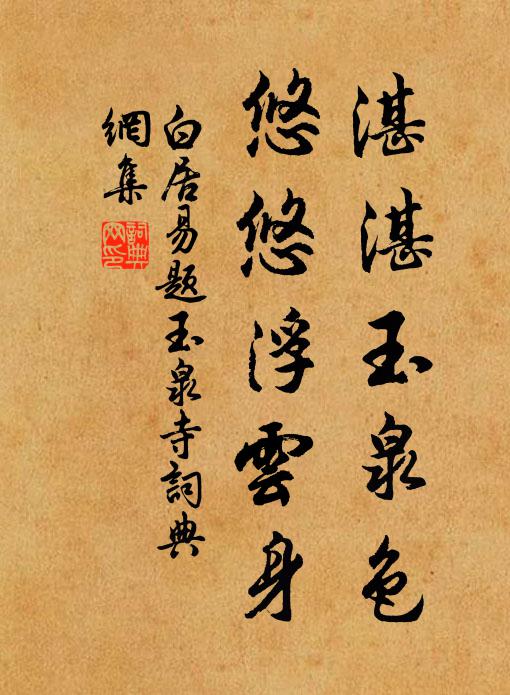 湛湛玉泉色
悠悠浮雲身
白居易題玉泉寺詞典
網集
詞典
网印